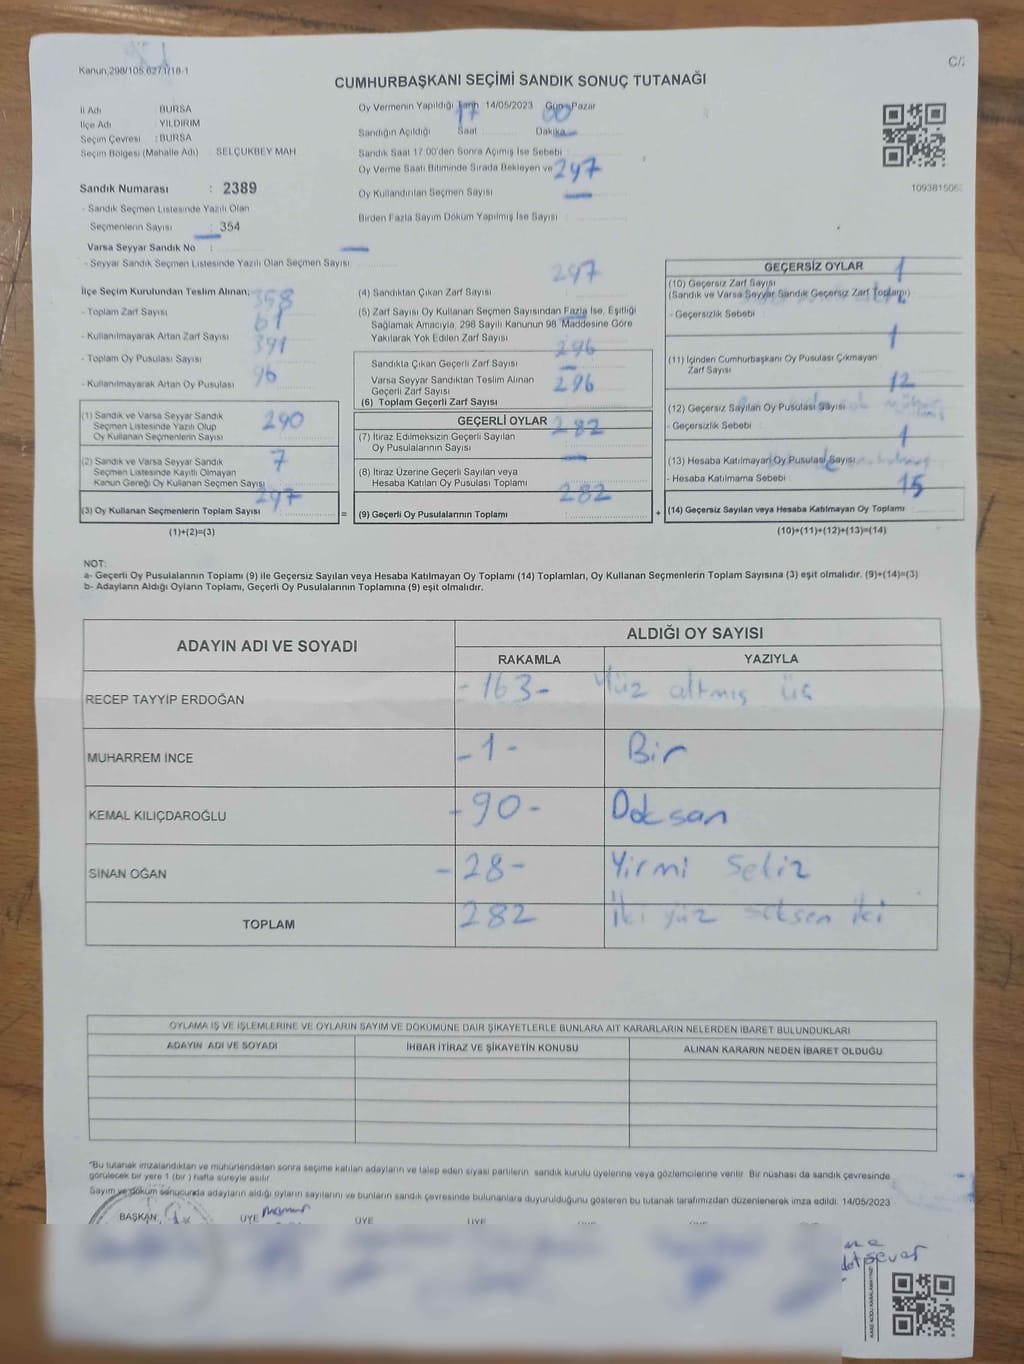 Kanun,298/105 6271/18-1
C/
CUMHURBAŞKANI SEÇİMİ SANDIK SONUÇ TUTANAĞI
İl Adı BURSA
İlçe Adı : YILDIRIM
Seçim Çevresi : BURSA
Seçim Bölgesi (Mahalle Adı) : SELÇUKBEY MAH
Sandık Numarası : 2389
- Sandık Seçmen Listesinde Yazılı Olan
Seçmenlerin Sayısı : 354
Varsa Seyyar Sandık No :
- Seyyar Sandık Seçmen Listesinde Yazılı Olan Seçmen Sayısı:
Oy Vermenin Yapıldığı Tarih 14/05/2023 Gün Pazar
Sandığın Açıldığı Saat 17 Dakika 00
Sandık Saat 17:00'den Sonra Açımış İse Sebebi :
Oy Verme Saati Bitiminde Sırada Bekleyen ve 297
Oy Kullandırılan Seçmen Sayısı
Birden Fazla Sayım Döküm Yapılmış İse Sayısı :
109381506
İlçe Seçim Kurulundan Teslim Alınan; 358
- Toplam Zarf Sayısı 61
- Kullanılmayarak Artan Zarf Sayısı 391
- Toplam Oy Pusulası Sayısı
- Kullanılmayarak Artan Oy Pusulası 96
(1) Sandık ve Varsa Seyyar Sandık
Seçmen Listesinde Yazılı Olup 290
Oy Kullanan Seçmenlerin Sayısı
(2) Sandık ve Varsa Seyyar Sandık 7
Seçmen Listesinde Kayıtlı Olmayan
Kanun Gereği Oy Kullanan Seçmen Sayısı
297
(3) Oy Kullanan Seçmenlerin Toplam Sayısı :
(1)+(2)=(3)
297
(4) Sandıktan Çıkan Zarf Sayısı
(5) Zarf Sayısı Oy Kullanan Seçmen Sayısından Fazla İse, Eşitliği
Sağlamak Amacıyla, 298 Sayılı Kanunun 98. Maddesine Göre
Yakılarak Yok Edilen Zarf Sayısı
296
Sandıkta Çıkan Geçerli Zarf Sayısı
Varsa Seyyar Sandıktan Teslim Alınan
Geçerli Zarf Sayısı 296
(6) Toplam Geçerli Zarf Sayısı
GEÇERLİ OYLAR
282
(7) İtiraz Edilmeksizin Geçerli Sayılan
Oy Pusulalarının Sayısı
(8) İtiraz Üzerine Geçerli Sayılan veya
Hesaba Katılan Oy Pusulası Toplamı
282
= (9) Geçerli Oy Pusulalarının Toplamı
GEÇERSİZ OYLAR
1
(10) Geçersiz Zarf Sayısı
(Sandık ve Varsa Seyyar Sandık Geçersiz Zarf Toplamı)
- Geçersizlik Sebebi :
1
(11) İçinden Cumhurbaşkanı Oy Pusulası Çıkmayan
Zarf Sayısı
12
(12) Geçersiz Sayılan Oy Pusulası Sayısı
- Geçersizlik Sebebi :
1
(13) Hesaba Katılmayan Oy Pusulası Sayısı
- Hesaba Katılmama Sebebi : 15
+ (14) Geçersiz Sayılan veya Hesaba Katılmayan Oy Toplamı
(10)+(11)+(12)+(13)=(14)
NOT:
a- Geçerli Oy Pusulalarının Toplamı (9) ile Geçersiz Sayılan veya Hesaba Katılmayan Oy Toplamı (14) Toplamları, Oy Kullanan Seçmenlerin Toplam Sayısına (3) eşit olmalıdır. (9)+(14)=(3)
b- Adayların Aldığı Oyların Toplamı, Geçerli Oy Pusulalarının Toplamına (9) eşit olmalıdır.
ADAYIN ADI VE SOYADI ALDIĞI OY SAYISI
RAKAMLA YAZIYLA
RECEP TAYYİP ERDOĞAN -163- Yüz altmış üç
MUHARREM İNCE -1- Bir
KEMAL KILIÇDAROĞLU -90- Doksan
SİNAN OĞAN -28- Yirmi Sekiz
TOPLAM 282 İki yüz seksen iki
OYLAMA İŞ VE İŞLEMLERİNE VE OYLARIN SAYIM VE DÖKÜMÜNE DAİR ŞİKAYETLERLE BUNLARA AİT KARARLARIN NELERDEN İBARET BULUNDUKLARI
ADAYIN ADI VE SOYADI İHBAR İTİRAZ VE ŞİKAYETİN KONUSU ALINAN KARARIN NEDEN İBARET OLDUĞU
*Bu tutanak imzalandıktan ve mühürlendikten sonra seçime katılan adayların ve talep eden siyasi partilerin sandık kurulu üyelerine veya gözlemcilerine verilir. Bir nüshası da sandık çevresinde
görülecek bir yere 1 (bir) hafta süreyle asılır
Sayım ve döküm sonucunda adayların aldığı oyların sayılarını ve bunların sandık çevresinde bulunanlara duyurulduğunu gösteren bu tutanak tarafımızdan düzenlenerek imza edildi. 14/05/2023
BAŞKAN ÜYE ÜYE ÜYE